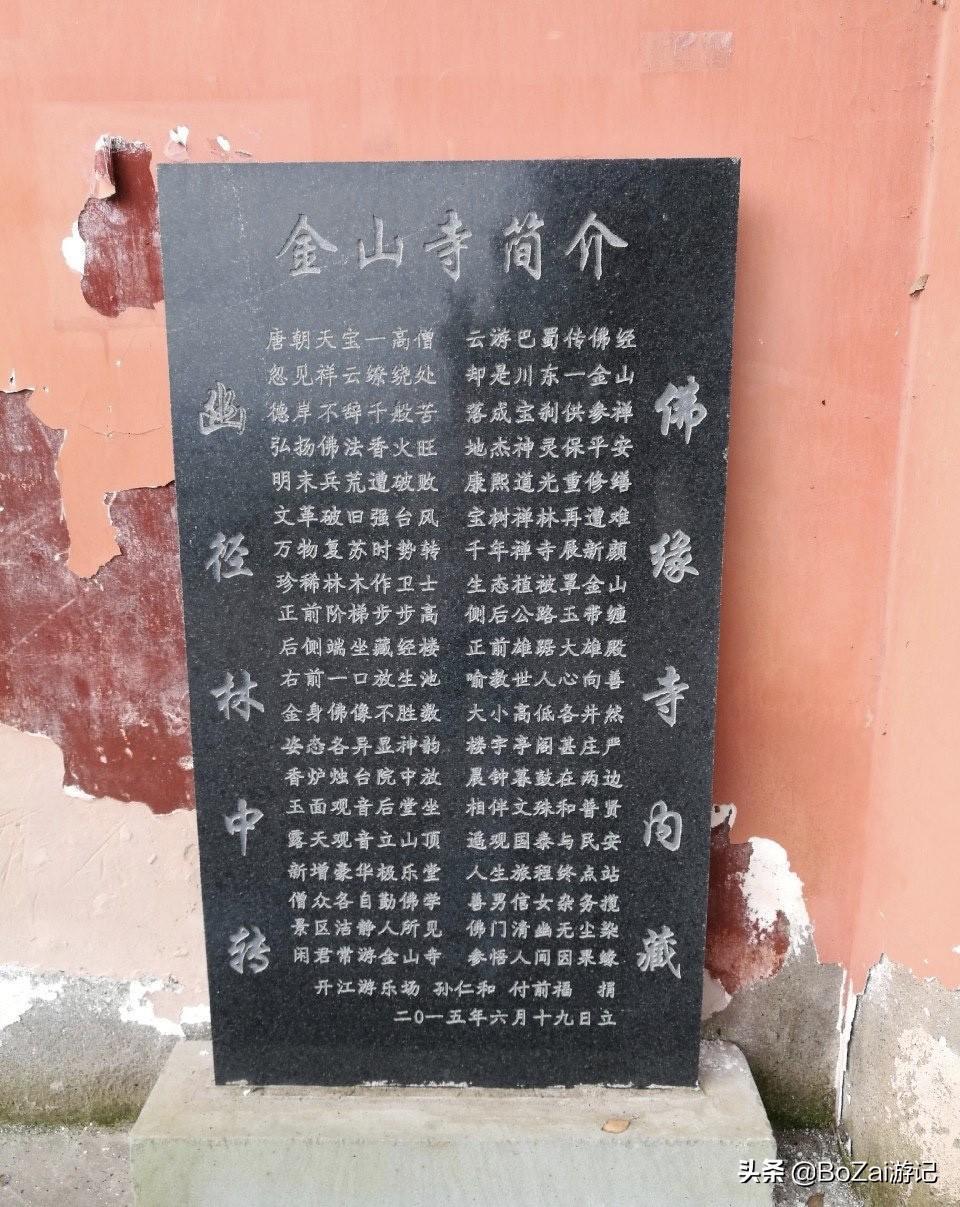 金山寺简介
幽径林中转
唐朝天宝一高僧 云游巴蜀传佛经
忽见祥云缭绕处 却是川东一金山
德岸不辞千般苦 落成宝刹供参禅
弘扬佛法香火旺 地杰神灵保平安
明末兵荒遭破败 康熙道光重修缮
文革破旧强台风 宝树禅林再遭难
万物复苏时势转 千年禅寺展新颜
珍稀林木作卫士 生态植被罩金山
正前阶梯步步高 侧后公路玉带缠
后侧端坐藏经楼 正前雄踞大雄殿
右前一口放生池 喻教世人心向善
金身佛像不胜数 大小高低各井然
姿态各异显神韵 楼宇亭阁甚庄严
香炉烛台院中放 晨钟暮鼓在两边
玉面观音后堂坐 相伴文殊和普贤
露天观音立山顶 遥观国泰与民安
新增豪华极乐堂 人生旅程终点站
僧众各自勤佛学 善男信女杂务揽
景区洁静人所见 佛门清幽无尘染
闲君常游金山寺 参悟人间因果缘
开江游乐场 孙仁和 付前福 捐
二0一五年六月十九日立
佛缘寺内藏
头条 @BoZai游记